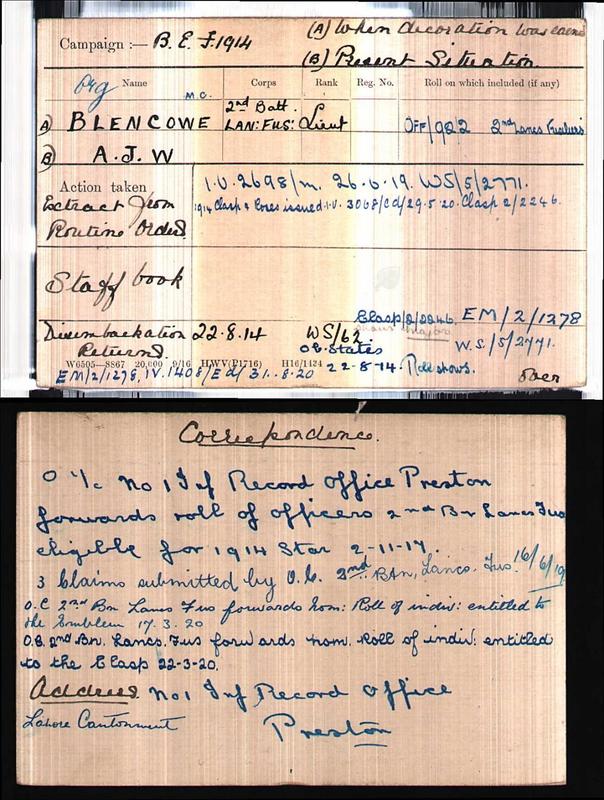 Campaign :— B.E.F. 1914
(A) When decoration was earned
(B) Present Situation
Name Corps Rank Reg. No. Roll on which included (if any)
M.C.
(A) BLENCOWE 2nd Batt. LAN: FUS: Lieut OFF/922 2nd Lancs Fusiliers
(B) A.J.W
Action taken I.V. 2698/m. 26.6.19. WS/5/2771.
Extract from 1914 Clasp & Roses issued I.V. 3068/Cd/29.5.20. Clasp 2/2246.
Routine Orders
Staff book
Clasp/2/2246 EM/2/1278
Disembarkation 22.8.14 WS/62 W.S./5/2771.
Returns. O.C. States
W6505—8867 20,000 9/16 HWV(P1716) H16/1424 22-8-14. Roll shows.
EM/2/1278, IV. 1408/Ed/31.8.20 over
Correspondence.
O i/c No 1 Inf Record Office Preston
forwards roll of officers 2nd Bn Lancs Fus
eligible for 1914 Star 2-11-17.
3 Claims submitted by O.C. 2nd Btn, Lancs. Fus. 16/6/19
O.C 2nd Bn Lancs Fus forwards nom: Roll of indiv: entitled to
the Emblem 17.3.20
O.C. 2nd Bn. Lancs. Fus forwards nom. Roll of indiv: entitled
to the Clasp 22-3-20.
Address. No 1 Inf Record Office
Lahore Cantonment Preston